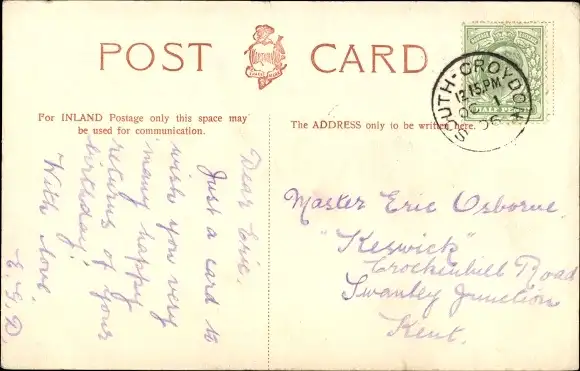 POST CARD
For INLAND Postage only this space may
be used for communication.
The ADDRESS only to be written here.
SOUTH-CROYDON
12.15 PM
OC 1
06
HALF PENNY
Dear Eric.
Just a card to
wish you very
many happy
returns of your
birthday!
With love.
E. G. D.
Master Eric Osborne.
"Keswick"
Crockenhill Road
Swanley Junction
Kent.